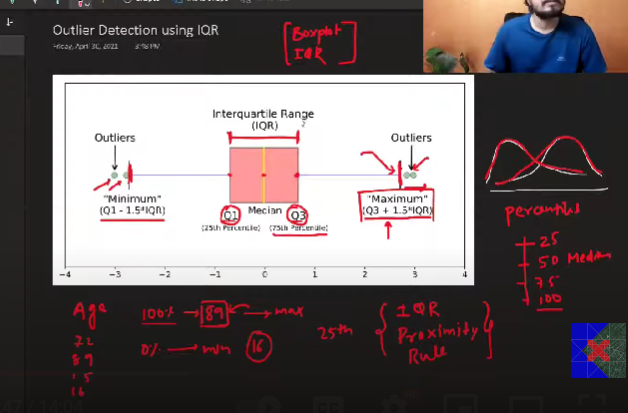 Outlier Detection using IQR
Friday, April 30, 2021 3:48 PM
[Boxplot
IQR]
Interquartile Range
(IQR)
Outliers
Outliers
"Minimum"
(Q1 - 1.5*IQR)
Q1
(25th Percentile)
Median
Q3
(75th Percentile)
"Maximum"
(Q3 + 1.5*IQR)
-4 -3 -2 -1 0 1 2 3 4
percentiles
25
50 Median
75
100
Age
72
89
15
16
100% → 89 → max
0% → min 16
25th
{ IQR
Proximity
Rule }